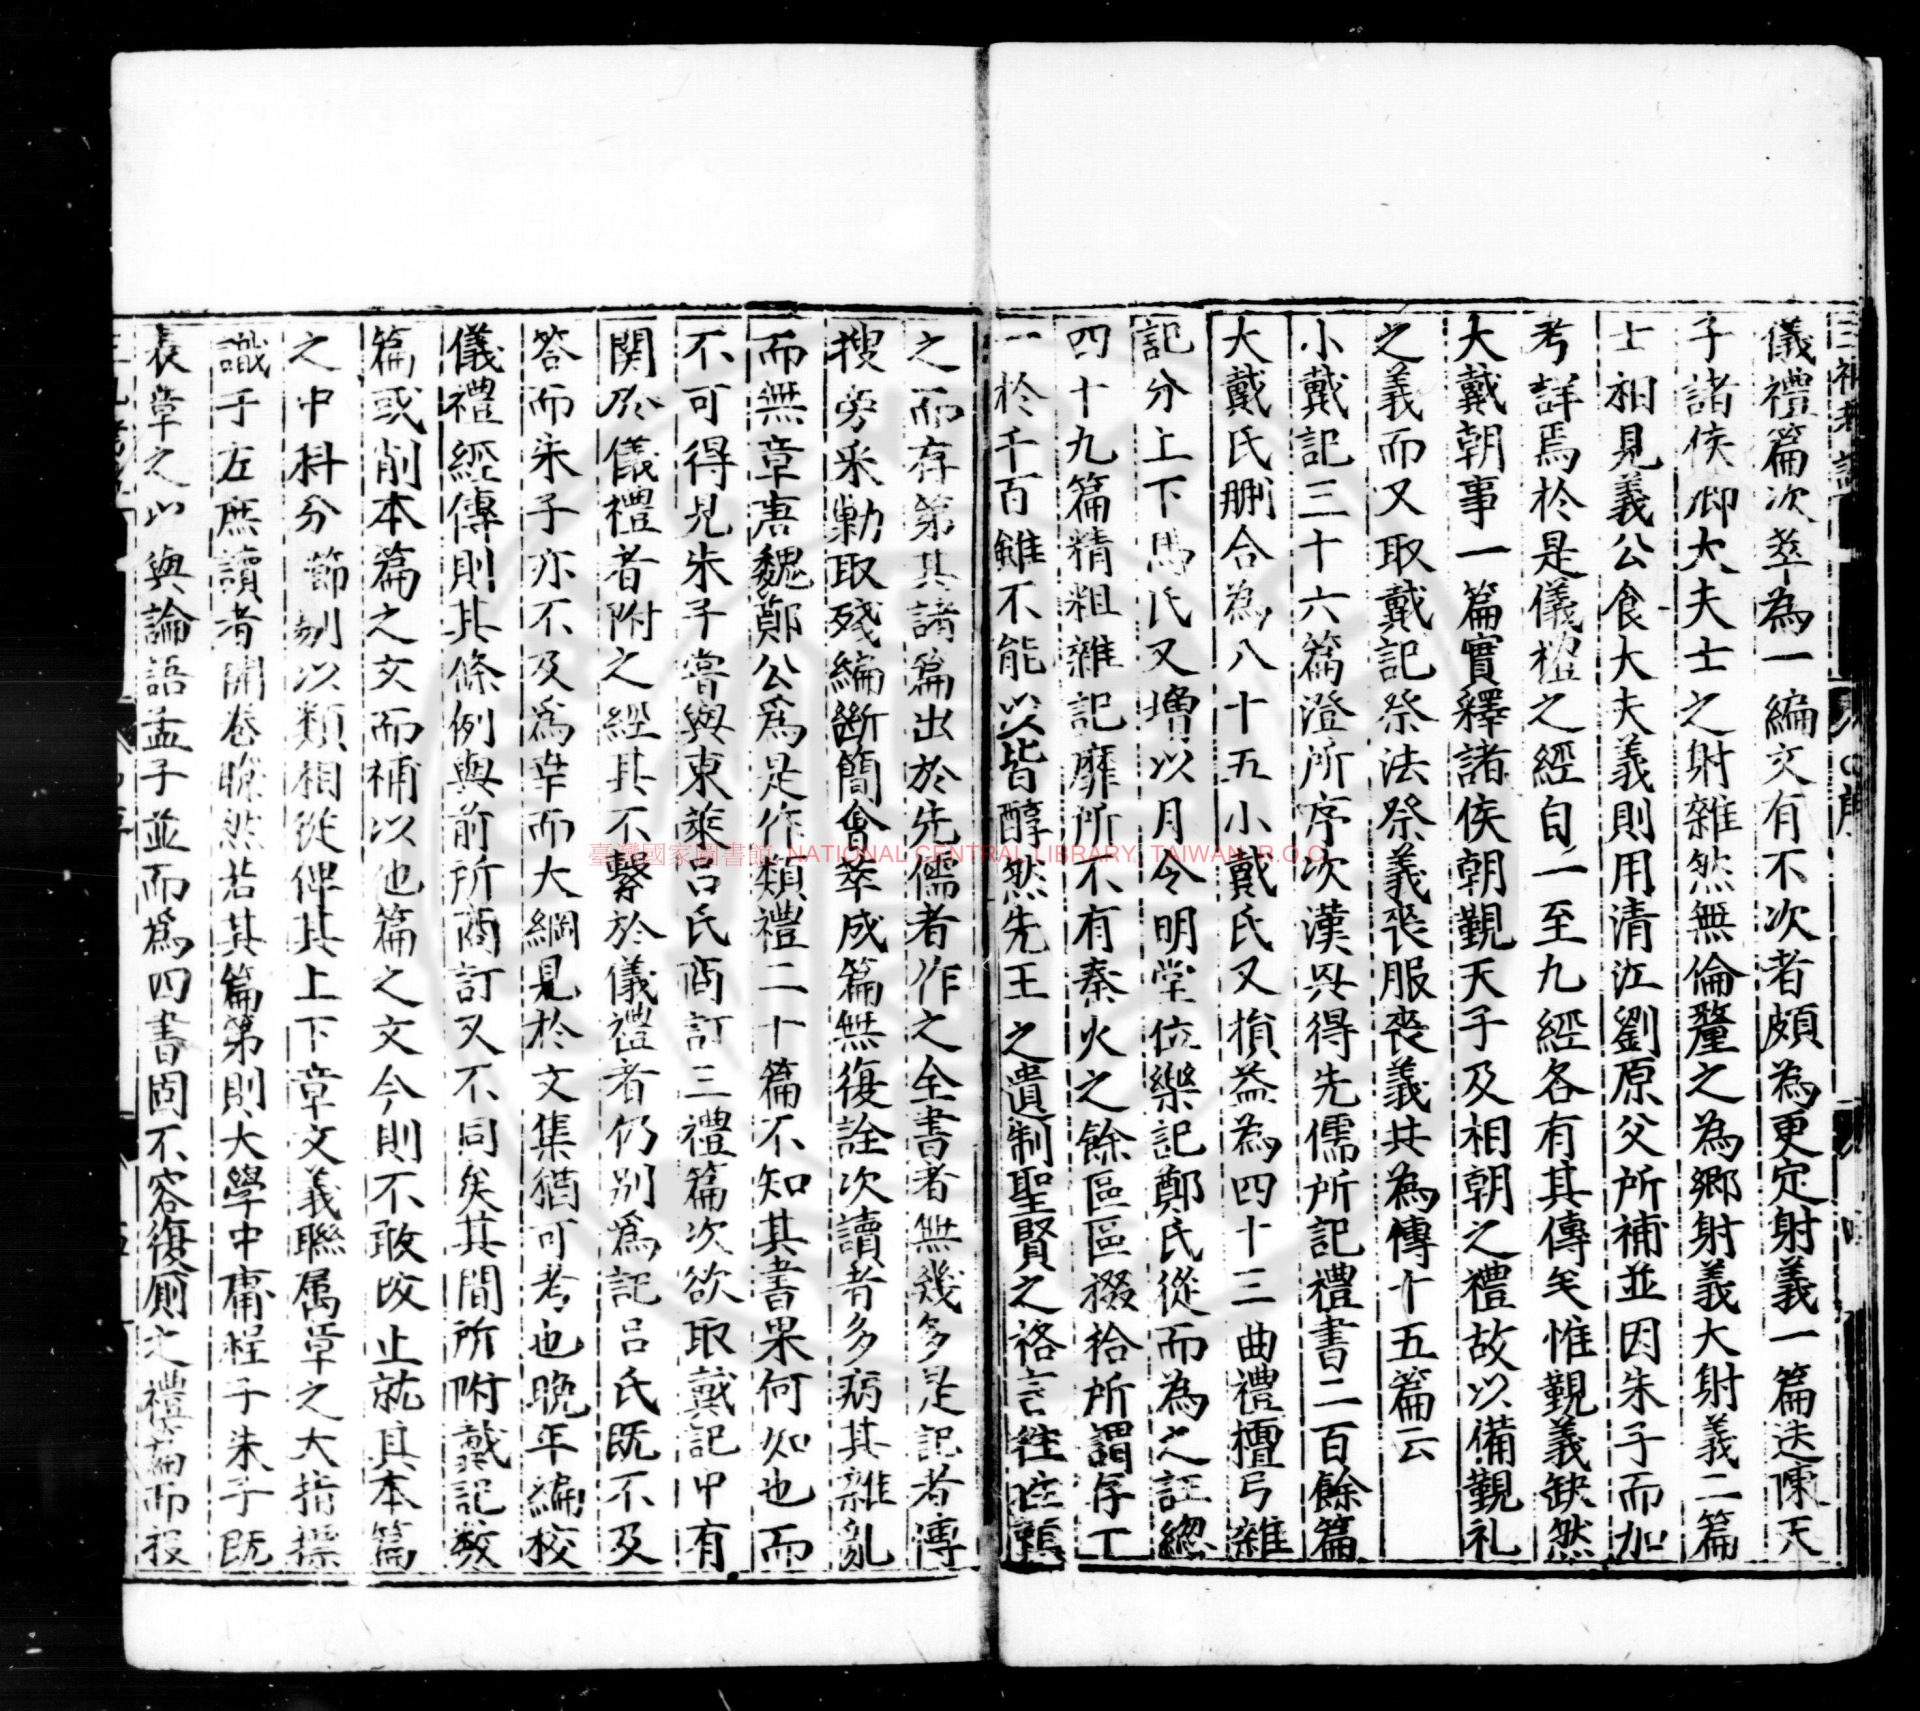 儀禮篇次萃為一編文有不次者頗為更定射義一篇迭陳天
子諸侯卿大夫士之射雜然無倫釐之為鄉射義大射義二篇
士相見義公食大夫義則用清江劉原父所補並因朱子而加
考詳焉於是儀禮之經自一至九經各有其傳矣惟覲義缺然
大戴朝事一篇實釋諸侯朝覲天子及相朝之禮故以備覲礼
之義而又取戴記祭法祭義喪服喪義共為傳十五篇云
小戴記三十六篇澄所序次漢兴得先儒所記禮書二百餘篇
大戴氏刪合為八十五小戴氏又損益為四十三曲禮檀弓雜
記分上下馬氏又增以月令明堂位樂記鄭氏從而為之註總
四十九篇精粗雜記靡所不有秦火之餘區區掇拾所謂存十
一於千百雖不能以皆醇然先王之遺制聖賢之格言往往賴
之而存第其諸篇出於先儒者作之全書者無幾多是記者傳
搜旁采勦取殘編斷簡會萃成篇無復詮次讀者多病其雜亂
而無章唐魏鄭公為是作類禮二十篇不知其書果何如也而
不可得見朱子嘗與東萊呂氏商訂三禮篇次欲取戴記中有
関於儀禮者附之經其不繫於儀禮者仍别為記呂氏既不及
答而朱子亦不及為幸而大綱見於文集猶可考也晚年編校
儀禮經傳則其條例與前所商訂又不同矣其間所附戴記数
篇或削本篇之文而補以他篇之文今則不敢改止就其本篇
之中科分節别以類相從俾其上下章文義聯属章之大指標
識于左庶讀者開卷瞭然若其篇第則大學中庸程子朱子既
表章之以與論語孟子並而為四書固不容復厠之禮篇而投
臺灣國家圖書館, NATIONAL CENTRAL LIBRARY, TAIWAN, R.O.C